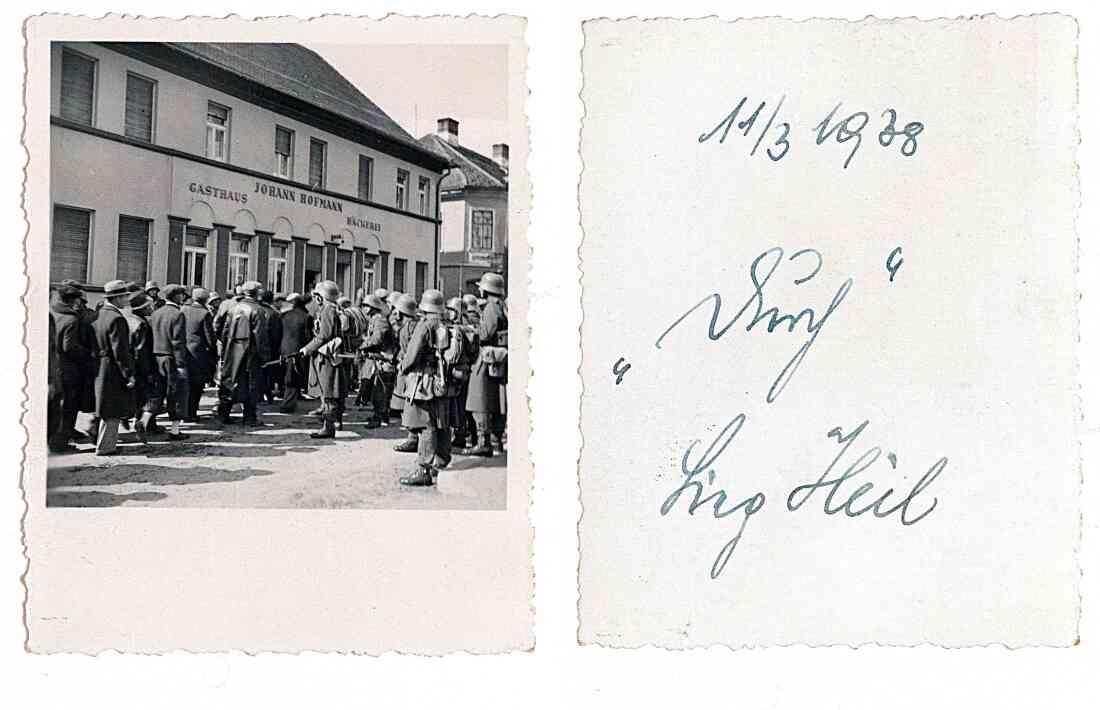 GASTHAUS JOHANN HOFMANN BÄCKEREI
11/3 1938
Sieg Heil